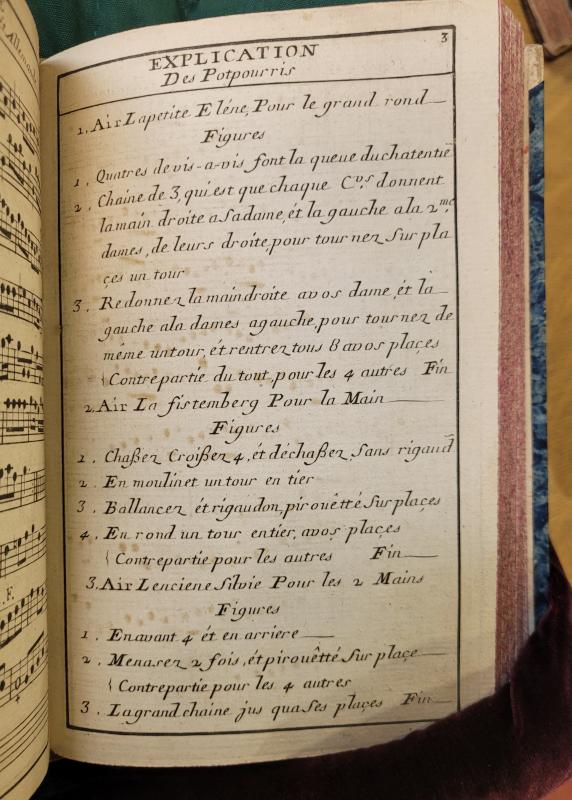 s Allemand
3
EXPLICATION
Des Potpourris
1. Air La petite Eléne, Pour le grand rond
Figures
1. Quatres de vis-a-vis font la queue du chat entiē
2. Chaine de 3, qui est que chaque C.vs donnent
la main droite a sa dame, ét la gauche a la 2.me
dames, de leurs droite, pour tournez sur pla
çes un tour
3. Redonnez la main droite a vos dame, ét la
gauche a la dames a gauche, pour tournez de
méme un tour, ét rentrez tous 8 a vos plaçes
Contrepartie du tout, pour les 4 autres Fin
2. Air La fistemberg Pour la Main
Figures
1. Chaßez Croißez 4, ét déchaßez, sans rigaud̄
2. En moulinet un tour en tier
3. Ballancez ét rigaudon, pirouëtté sur plaçes
4. En rond un tour entier, a vos plaçes
Contrepartie pour les autres Fin
3. Air Lenciene silvie Pour les 2 Mains
Figures
1. En avant 4 ét en arriere
2. Menasez 2 fois, ét pirouêtté sur plaçe
Contrepartie pour les 4 autres
3. La grand chaine jus qua ses plaçes Fin
F.